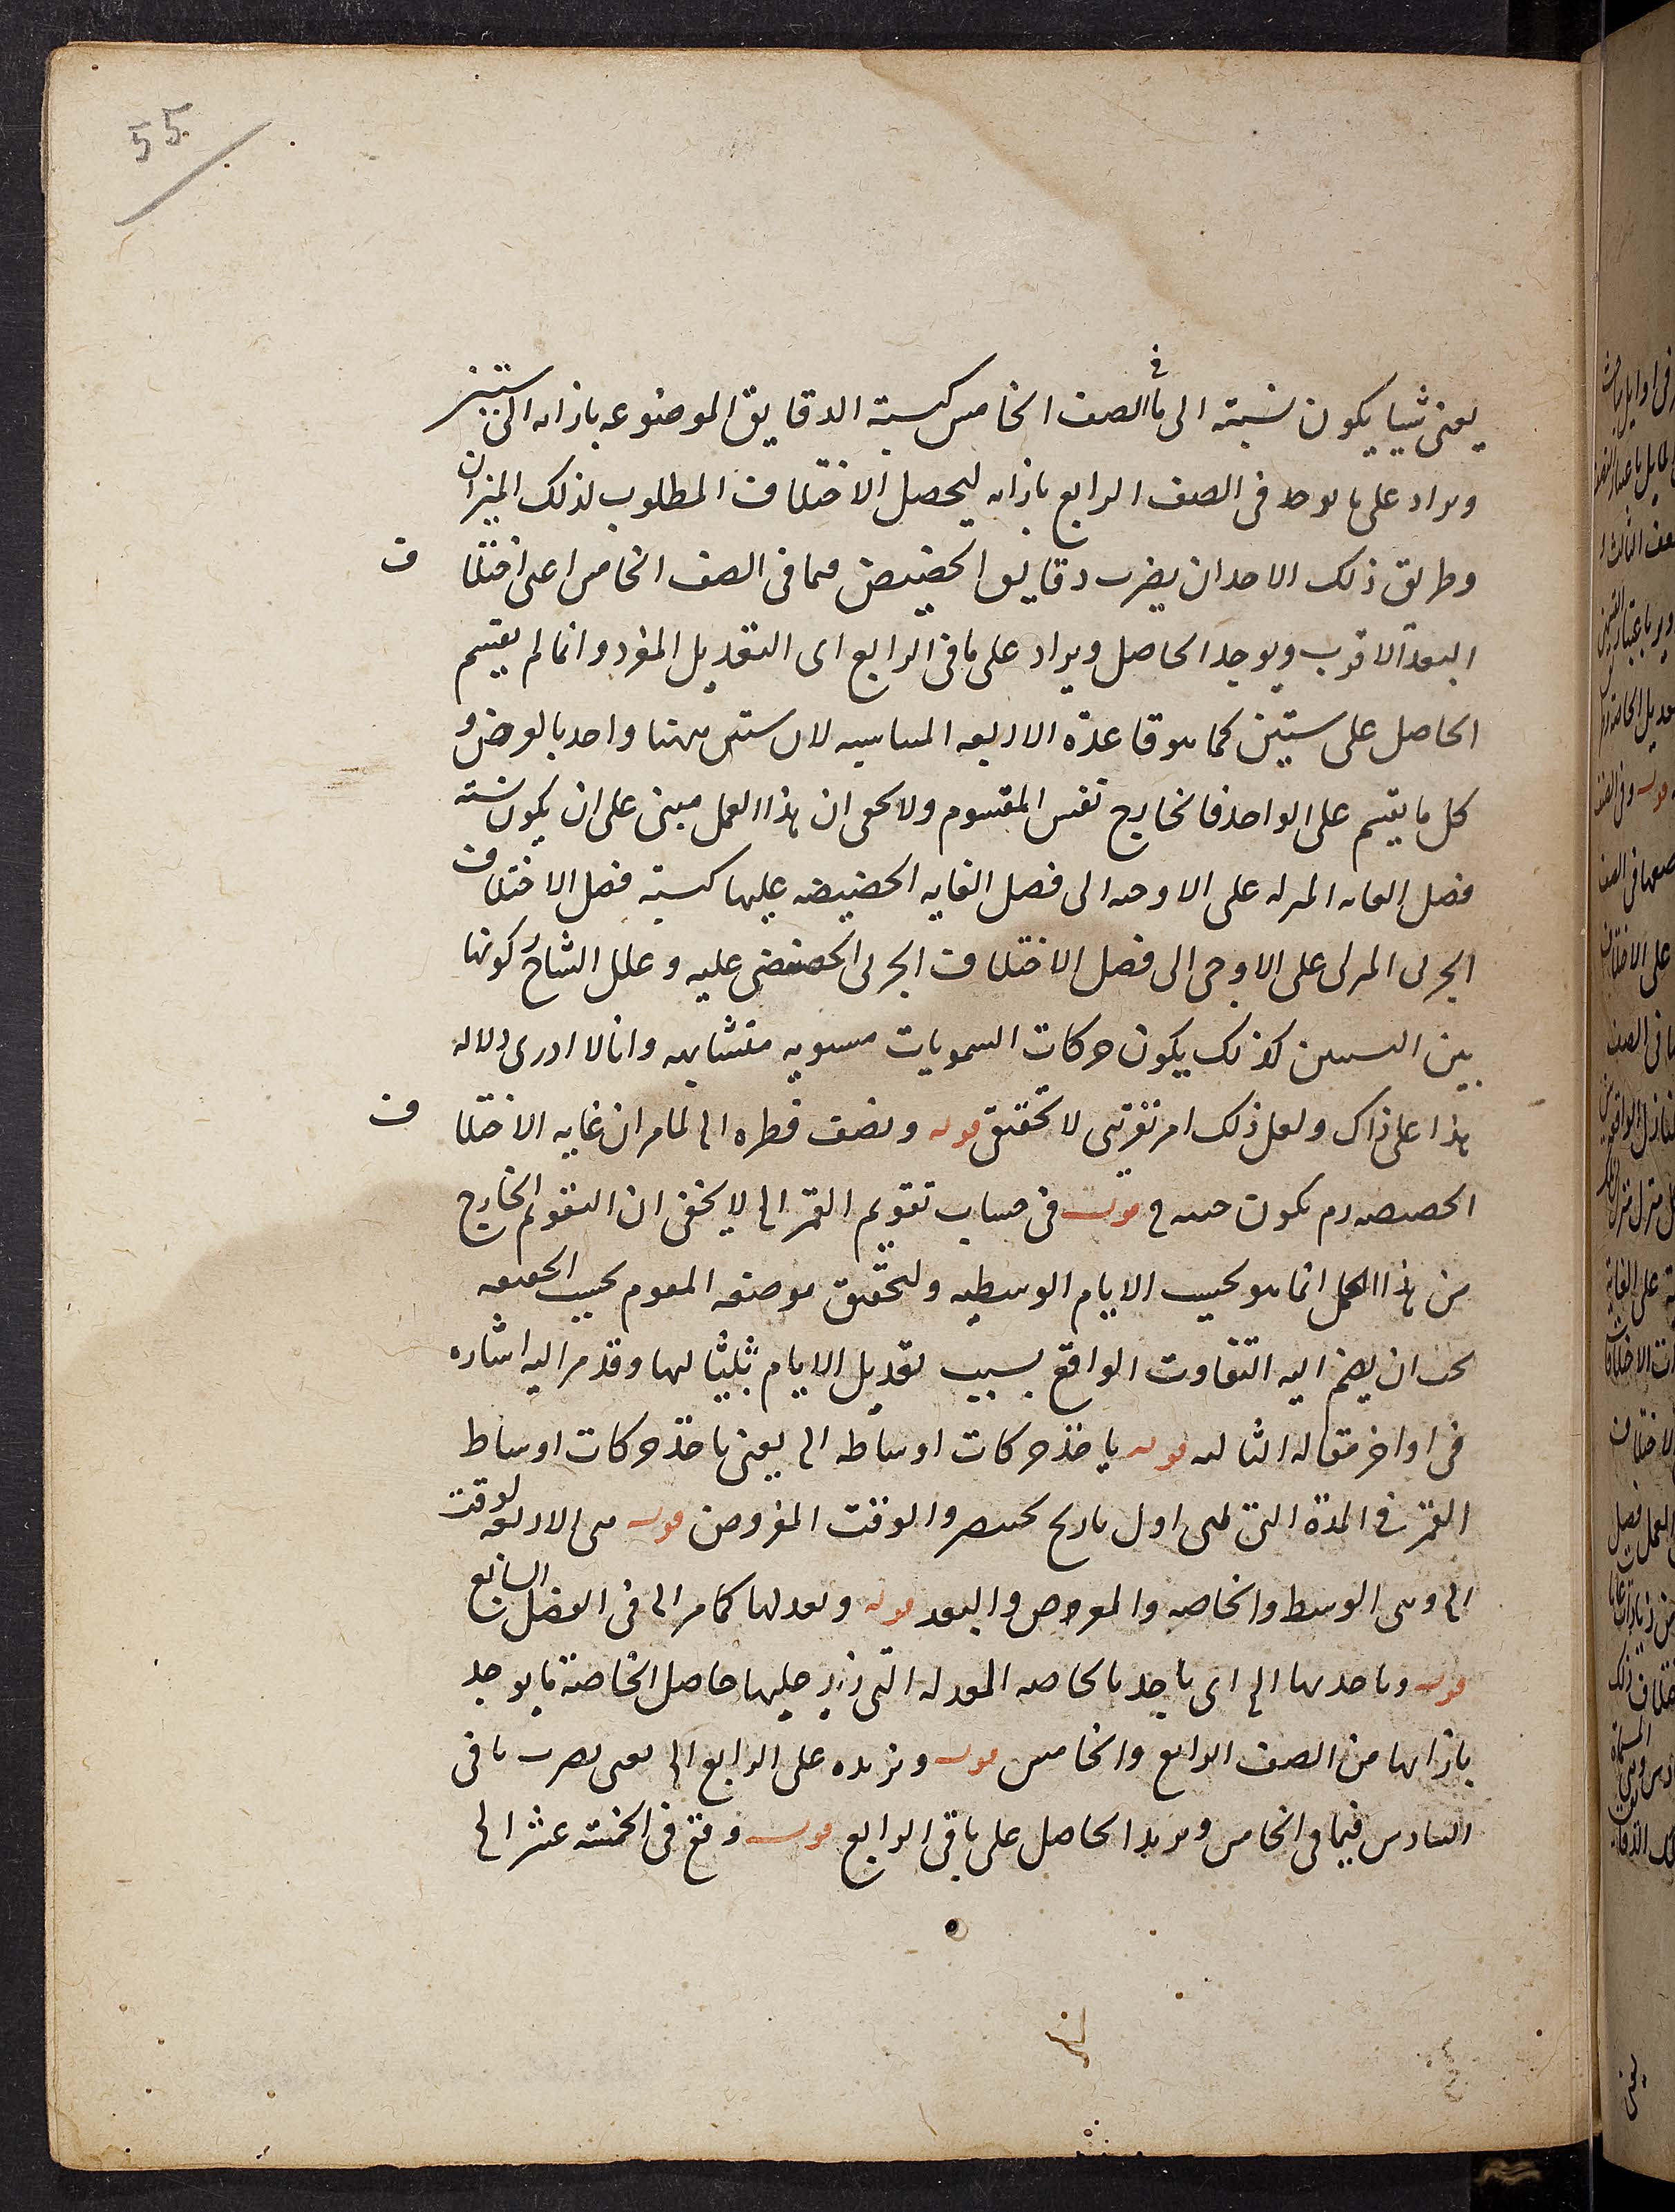 55
يعنى شيا يكون نسبته الى ما فى الصف الخامس كنسبة الدقايق الموضوعه بازائه الى ستين
ويزاد على ما يوجد فى الصف الرابع بازائه ليحصل الاختلاف المطلوب لذلك الميزان
وطريق ذلك الاحد ان يضرب دقايق الحضيض فيما فى الصف الخامس اعنى اختلاف
البعد الاقرب ويوجد الحاصل ويزاد على ما فى الرابع اى التعديل المفرد وانما لم يقسم
الحاصل على ستين كما هو قاعدة الاربعه المتناسبه لان ستين ههنا واحد بالوضع و
كل ما يقسم على الواحد فالخارج نفس المقسوم ولا يخفى ان هذا العمل مبنى على ان يكون نسبته
فضل الغايه المنزله على الاوجيه الى فضل الغايه الحضيضيه عليها كنسبة فضل الاختلاف
الجزئى المنزلى على الاوجى الى فضل الاختلاف الجزئى الحضيضى عليه وعلل الشارح كونها
بين النسبتين كذلك بكون حركات السمويات مستويه متشابهه وانا لا ادرى دلاله
هذا على ذاك ولعل ذلك امر تقريبى لا تحقيق قوله ونصف قطره الخ لما مر ان غايه الاختلاف
الحضيضيه يكون قوله فى حساب تقويم القمر الخ لا يخفى ان التقويم الخارج
من هذا العمل انما هو بحسب الايام الوسطيه ولتحقيق موضعه المقوم بحسب الحقيقه
يجب ان يضم اليه التفاوت الواقع بسبب تعديل الايام بلياليها وقد مر اليه اشاره
فى اواخر مقاله الثالثه قوله ياخذ حركات اوساطه الخ يعنى ياخذ حركات اوساط
القمر فى المدة التى بين اول تاريخ بختنصر والوقت المفروض قوله هى الاربعه لوقت
الخ وهى الوسط والخاصه والعرض والبعد قوله ويعدلها كما مر الخ فى الفصل السابع
قوله وياخذ بها الخ اى ياخذ بالخاصه المعدله التى زيد عليها حاصل الخاصة ما يوجد
بازائها من الصف الرابع والخامس قوله ونزيده على الرابع الخ يعنى يضرب ما فى
السادس فيما فى الخامس ويزيد الحاصل على ما فى الرابع قوله وقع فى الخمسة عشر الخ